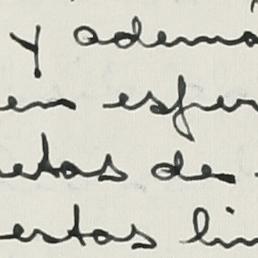 y ademá
en esper
etas de
ertas lin